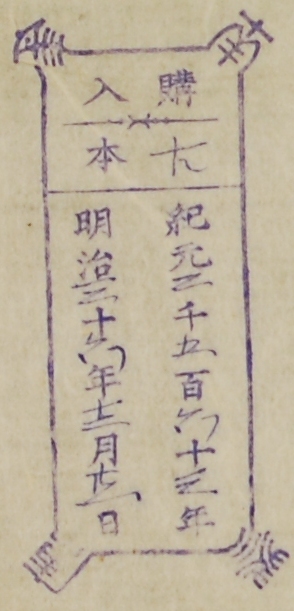 購入
本
紀元二千五百六十三年
明治三十六年十二月日